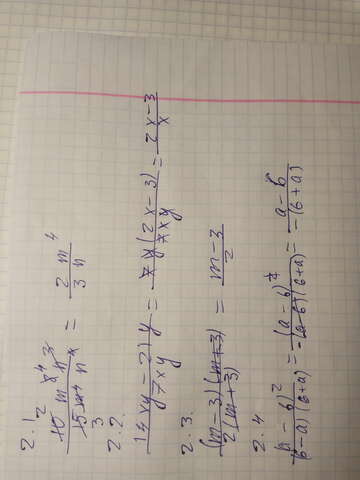 2.1
10 m^8 n^3 / 15 m^4 n^4 = 2 m^4 / 3 n
2.2.
14xy - 21y / 7xy = 7y(2x-3) / 7xy = 2x-3 / x
2.3.
(m-3)(m+3) / 2(m+3) = m-3 / 2
2.4
(a-b)^2 / (b-a)(b+a) = (a-b)^2 / -(a-b)(b+a) = a-b / -(b+a)